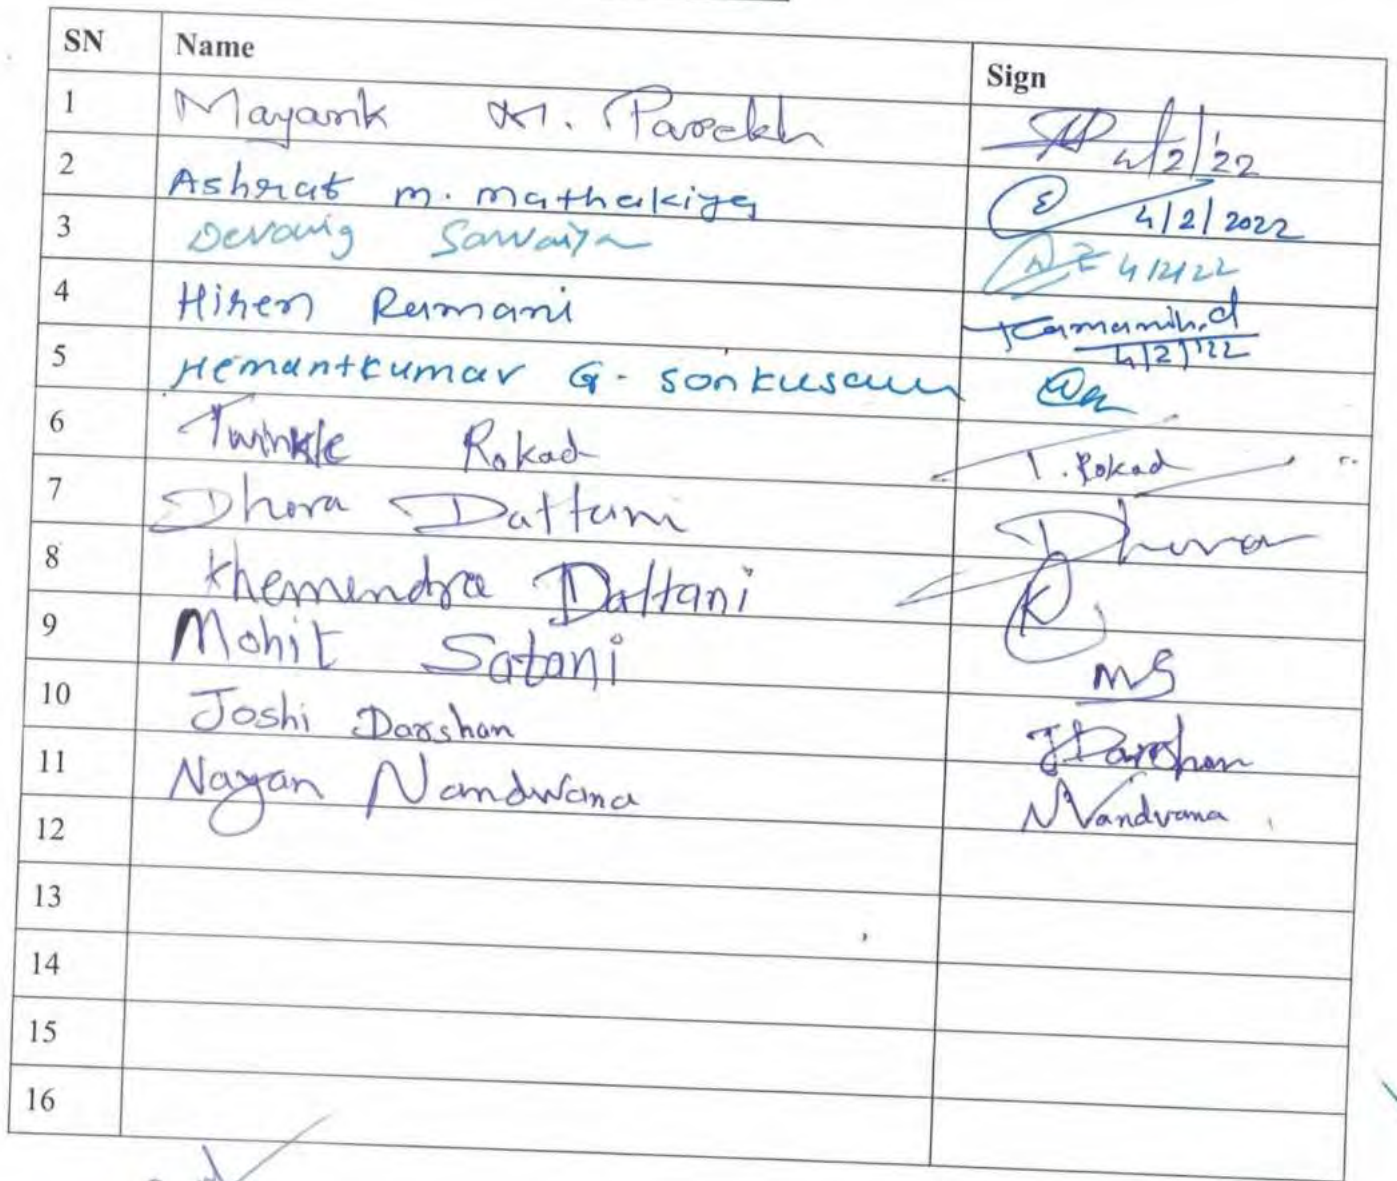 SN Name Sign
1 Mayank M. Parekh 4/2/'22
2 Ashrat m. mathakiya 4/2/2022
3 Devang Sarvaiya 4/2/22
4 Hiren Ramani Ramanih.d 4/2/'22
5 Hemantkumar G. Sonkusare
6 Twinkle Rokad T. Rokad
7 Dhora Dattani Dhora
8 Khemendra Dattani K
9 Mohit Satani MS
10 Joshi Darshan JDarshan
11 Nayan Nandwana NNandvana
12
13
14
15
16